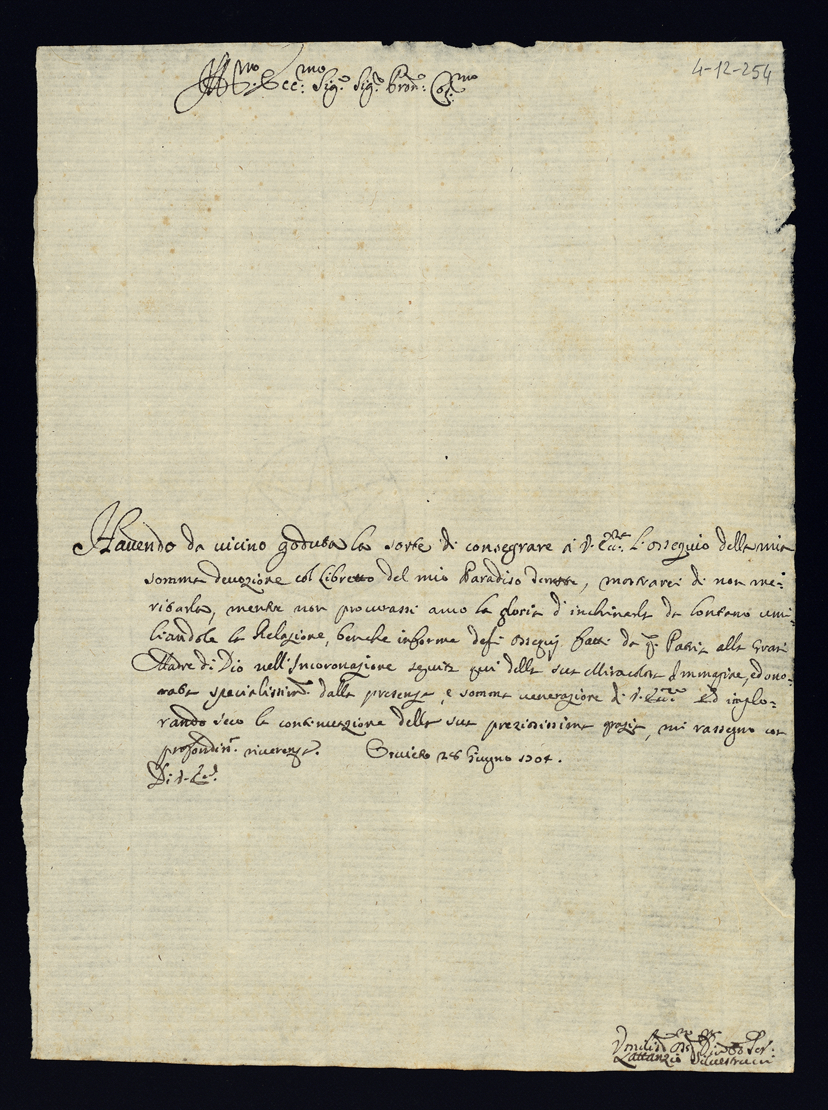 4-12-254
Ill.mo Ecc.mo Sig.e Sig.e Pron: Col:mo
Havendo da vicino goduta la sorte di consegrare a V. Ecc.za l'ossequio della mia
somma devozione col Libretto del mio Paradiso, mostrarei di non me-
ritarla, mentre non procurassi anco la gloria d'inchinarla da lontano umi-
liandole la Relazione, benche informe degl'ossequij fatti da q.a Patria alla Gran
Madre di Dio nell'Incoronazione seguita qui della sua Miracolosa Immagine, ed ono-
rata specialissim.e dalla presenza, e somma venerazione di V. Ecc.za Ed implo-
rando seco la continuazione della sua preziosissima grazia, mi rassegno con
profondis.a riverenza. Orvieto 26 Giugno
Di V. Ecc.
Umiliss.o Dev.mo Ser.
Lattanzio